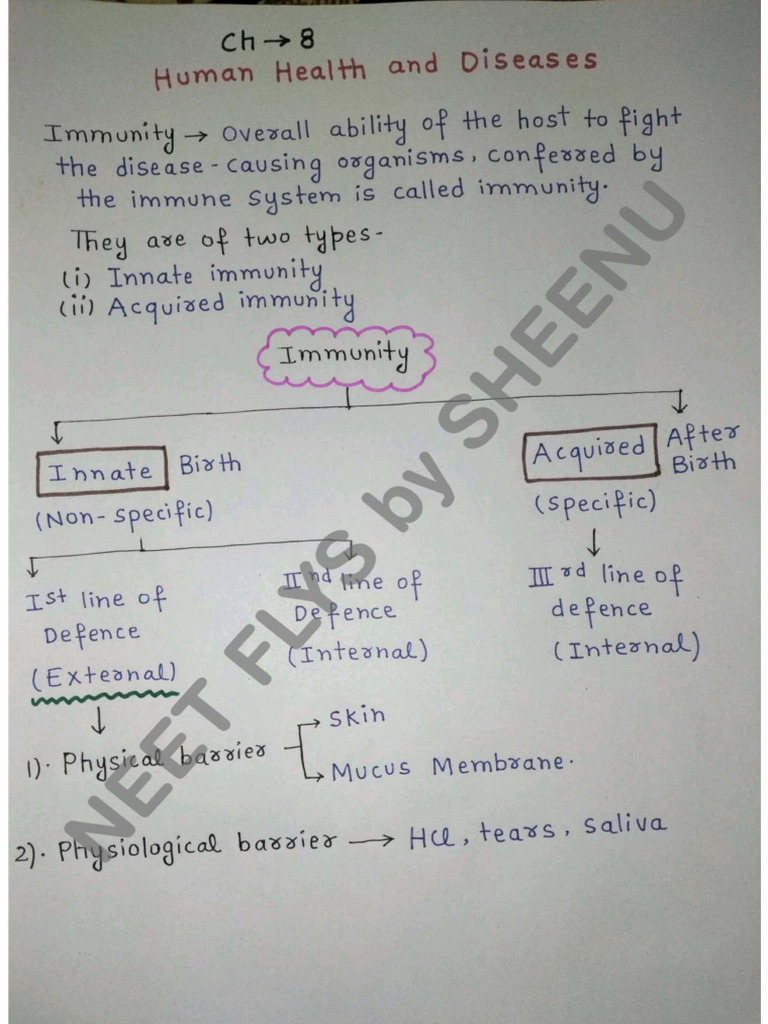 Ch → 8
Human Health and Diseases
Immunity → Overall ability of the host to fight
the disease - causing organisms, conferred by
the immune system is called immunity.
They are of two types -
(i) Innate immunity
(ii) Acquired immunity
Immunity
Innate Birth
(Non- specific)
Acquired After
Birth
(specific)
Ist line of
Defence
(External)
IInd line of
Defence
(Internal)
IIIrd line of
defence
(Internal)
1). Physical barrier
Skin
Mucus Membrane.
2). Physiological barrier → HCl, tears, saliva
NEET FLYS by SHEENU